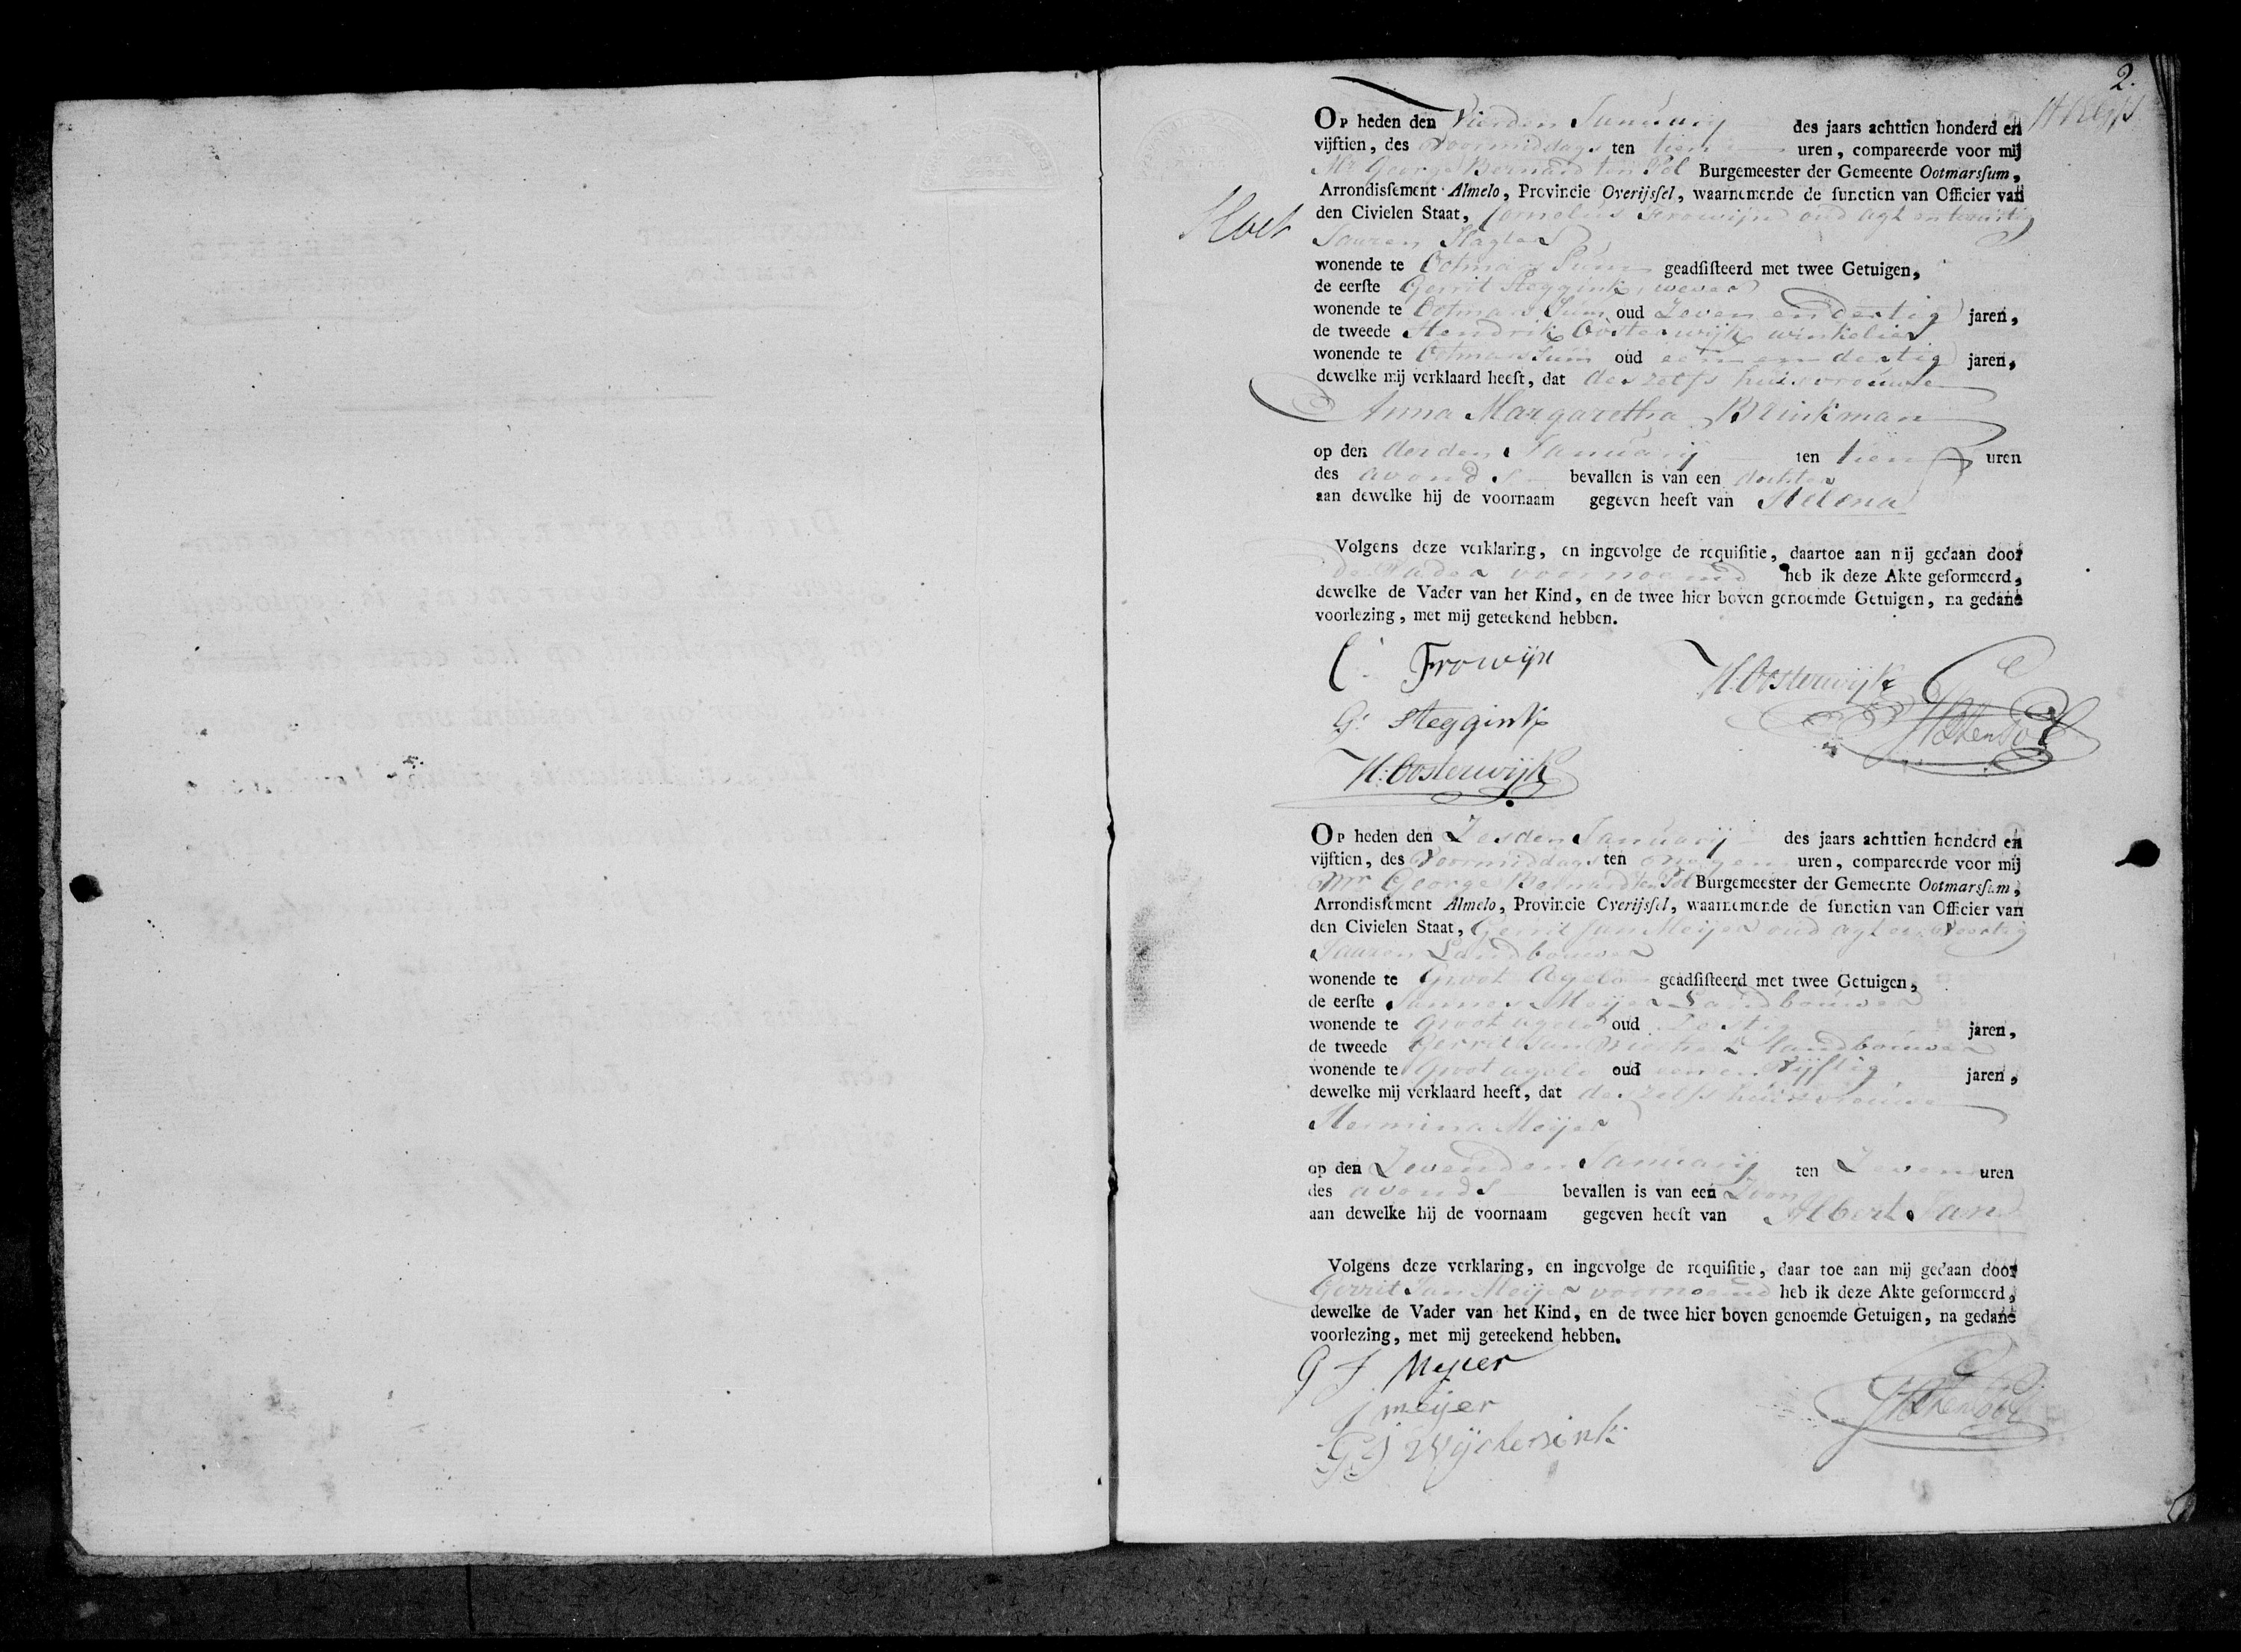 2.
Op heden den Vierden Januarij des jaars achttien honderd en
vijftien, des Voormiddags ten tien uren, compareerde voor mij
Mr George Bernard ten Pol Burgemeester der Gemeente Ootmarsſum,
Arrondisſement Almelo, Provincie Overijsſel, waarnemende de functien van Officier van
den Civielen Staat, Cornelius Frowijn oud agt en twintig
Jaaren Slagter
wonende te Ootmarsum geadſiſteerd met twee Getuigen,
de eerſte Gerrit Steggink, wever
wonende te Ootmarsum oud Zeven en dertig jaren,
de tweede Hendrik Oosterwijk winkelier
wonende te Ootmarssum oud een en dertig jaren,
dewelke mij verklaard heeft, dat deszelfs huisvrouwe
Anna Margaretha Brinkman
op den derden Januarij ten tien uren
des avonds bevallen is van een dochter
aan dewelke hij de voornaam gegeven heeft van Helena
Volgens deze verklaring, en ingevolge de requiſitie, daartoe aan mij gedaan door
de Vader voornoemd heb ik deze Akte geformeerd,
dewelke de Vader van het Kind, en de twee hier boven genoemde Getuigen, na gedane
voorlezing, met mij geteekend hebben.
C. Frowijn
H. Oosterwijk
G. Steggink
H. Oosterwijk
Op heden den Zesden Januarij des jaars achttien honderd en
vijftien, des Voormiddags ten negen uren, compareerde voor mij
Mr George Bernard ten Pol Burgemeester der Gemeente Ootmarsſum,
Arrondisſement Almelo, Provincie Overijsſel, waarnemende de functien van Officier van
den Civielen Staat, Gerrit Jan Meijer oud agt en veertig
Jaaren Landbouwer
wonende te Groot Agelo geadſiſteerd met twee Getuigen,
de eerſte Jannes Meijer Landbouwer
wonende te Groot agelo oud Zestig jaren,
de tweede Gerrit Jan landbouwer
wonende te Groot agelo oud een en Vijftig jaren,
dewelke mij verklaard heeft, dat deszelfs huisvrouwe
Hermina Meijer
op den Zevenden Januarij ten Zeven uren
des avonds bevallen is van een Zoon
aan dewelke hij de voornaam gegeven heeft van Albert Jan
Volgens deze verklaring, en ingevolge de requiſitie, daar toe aan mij gedaan door
Gerrit Jan Meijer voornoemd heb ik deze Akte geformeerd,
dewelke de Vader van het Kind, en de twee hier boven genoemde Getuigen, na gedane
voorlezing, met mij geteekend hebben.
G J Meijer
j meijer
G J Wijchersink